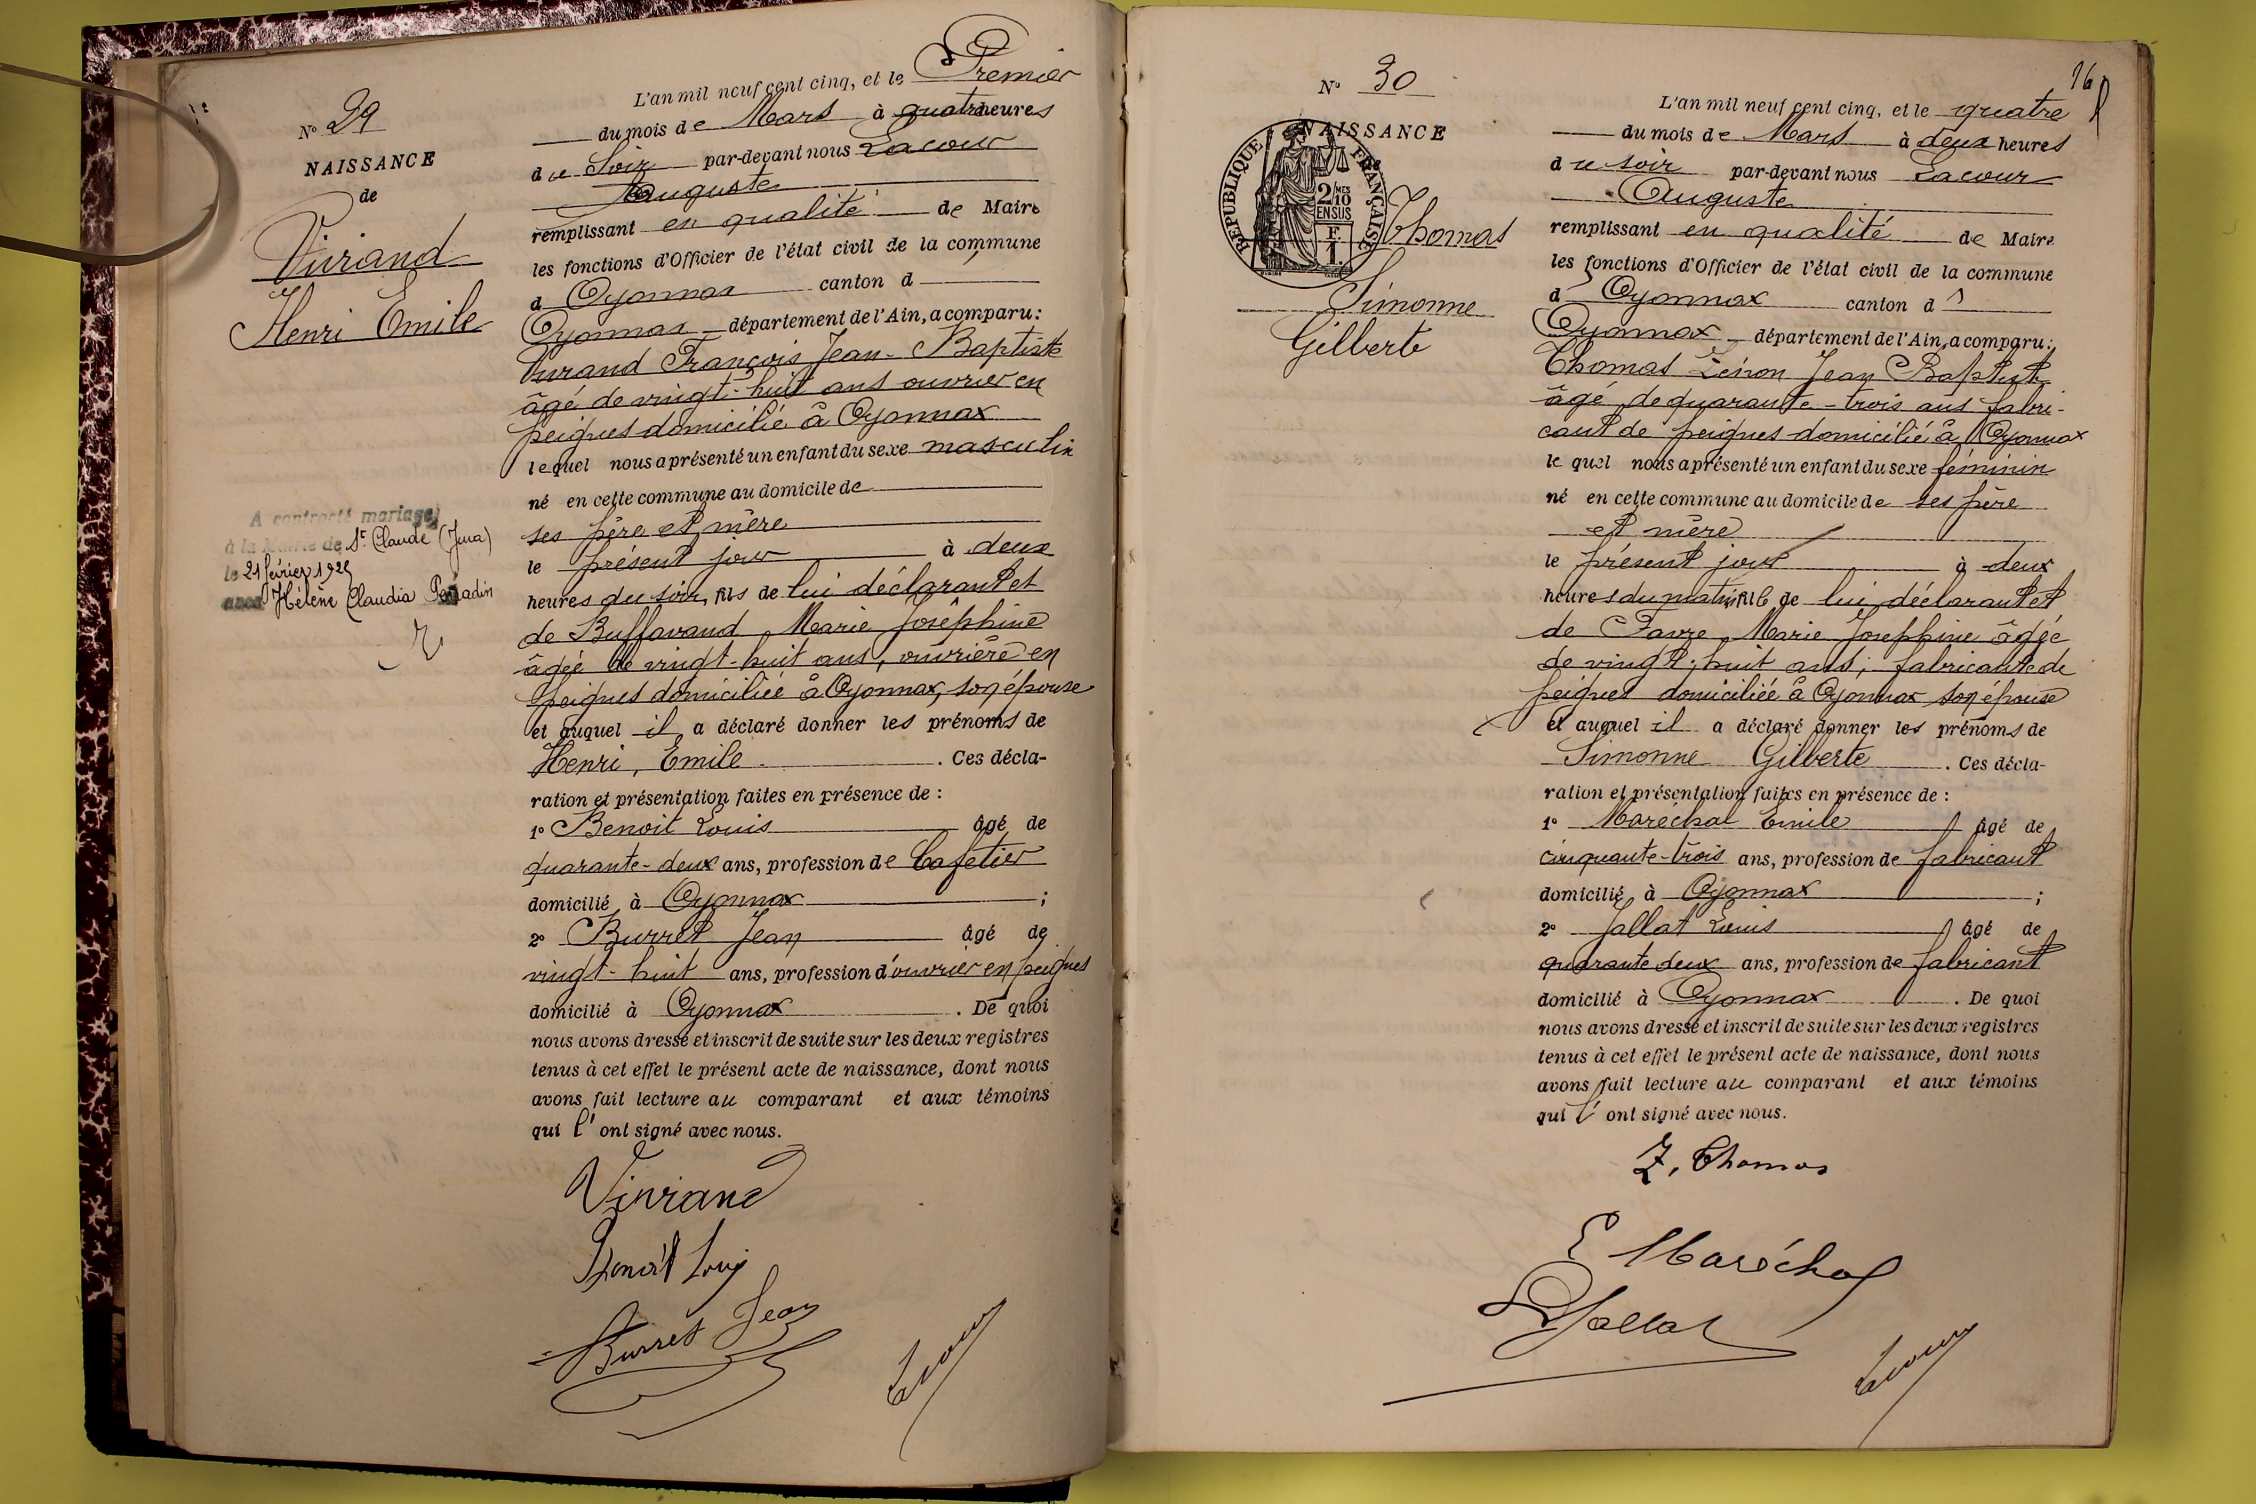 N° 29
NAISSANCE
de
Vivrand
Henri Emile
A contracté mariage
à la Mairie de St. Claude (Jura)
le 21 février 1925
avec Hélène Claudia
L'an mil neuf cent cinq, et le Premier
du mois de Mars à quatre heures
du Soir par-devant nous Lacour
Auguste
remplissant en qualité de Maire
les fonctions d'Officier de l'état civil de la commune
d Oyonnax canton d
Oyonnax département de l'Ain, a comparu :
Vivrand François Jean-Baptiste
âgé de vingt-huit ans ouvrier en
peignes domicilié à Oyonnax
lequel nous a présenté un enfant du sexe masculin
né en cette commune au domicile de
ses père et mère
le présent jour à deux
heures du soir, fils de lui déclarant et
de Buffavand Marie Joséphine
âgée de vingt-huit ans, ouvrière en
peignes domiciliée à Oyonnax, son épouse
et auquel il a déclaré donner les prénoms de
Henri, Emile . Ces décla-
ration et présentation faites en présence de :
1° Benoit Louis âgé de
quarante-deux ans, profession de Cafetier
domicilié à Oyonnax ;
2° Burret Jean âgé de
vingt-huit ans, profession d'ouvrier en peignes
domicilié à Oyonnax . De quoi
nous avons dressé et inscrit de suite sur les deux registres
tenus à cet effet le présent acte de naissance, dont nous
avons fait lecture au comparant et aux témoins
qui l' ont signé avec nous.
Vivrand
Benoit Louis
Burret Jean
Lacour
16
N° 30
NAISSANCE
RÉPUBLIQUE FRANÇAISE
2/10 MES
EN SUS
F.
1.
Thomas
Simonne
Gilberte
L'an mil neuf cent cinq, et le quatre
du mois de Mars à deux heures
du soir par-devant nous Lacour
Auguste
remplissant en qualité de Maire
les fonctions d'Officier de l'état civil de la commune
d Oyonnax canton d
Oyonnax département de l'Ain, a comparu :
Thomas Zénon Jean Baptiste
âgé de quarante-trois ans fabri-
cant de peignes domicilié à Oyonnax
le quel nous a présenté un enfant du sexe féminin
né en cette commune au domicile de ses père
et mère
le présent jour à deux
heures du matin, fille de lui déclarant et
de Favre Marie Josephine âgée
de vingt-huit ans, fabricante de
peignes domiciliée à Oyonnax son épouse
et auquel il a déclaré donner les prénoms de
Simonne Gilberte . Ces décla-
ration et présentation faites en présence de :
1° Maréchal Emile âgé de
cinquante-trois ans, profession de fabricant
domicilié à Oyonnax ;
2° Jallat Louis âgé de
quarante deux ans, profession de fabricant
domicilié à Oyonnax . De quoi
nous avons dressé et inscrit de suite sur les deux registres
tenus à cet effet le présent acte de naissance, dont nous
avons fait lecture au comparant et aux témoins
qui l' ont signé avec nous.
Z. Thomas
E Maréchal
L Jallat
Lacour